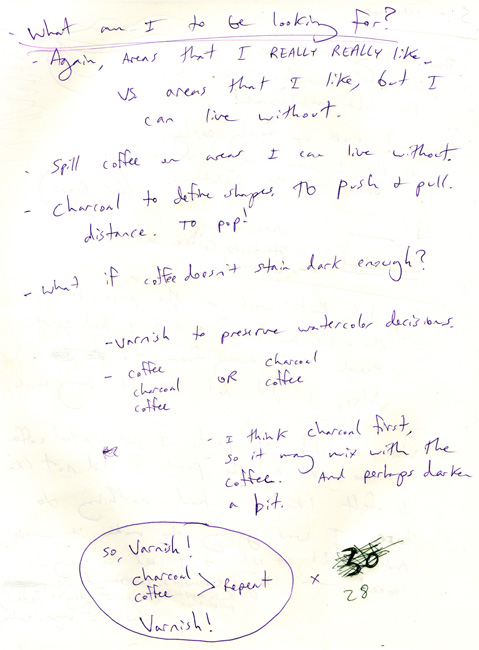 - What am I to be looking for?
- Again, areas that I REALLY REALLY like.
vs areas that I like, but I
can live without.
- Spill coffee on areas I can live without.
- Charcoal to define shapes. TO push & pull.
distance. TO pop!
- What if coffee doesn't stain dark enough?
- Varnish to preserve watercolor decisions.
- coffee
charcoal
coffee
OR
charcoal
coffee
- I think charcoal first,
so it may mix with the
coffee. And perhaps darken
a bit.
so, Varnish!
charcoal
coffee
> Repeat
Varnish!
x 30
28